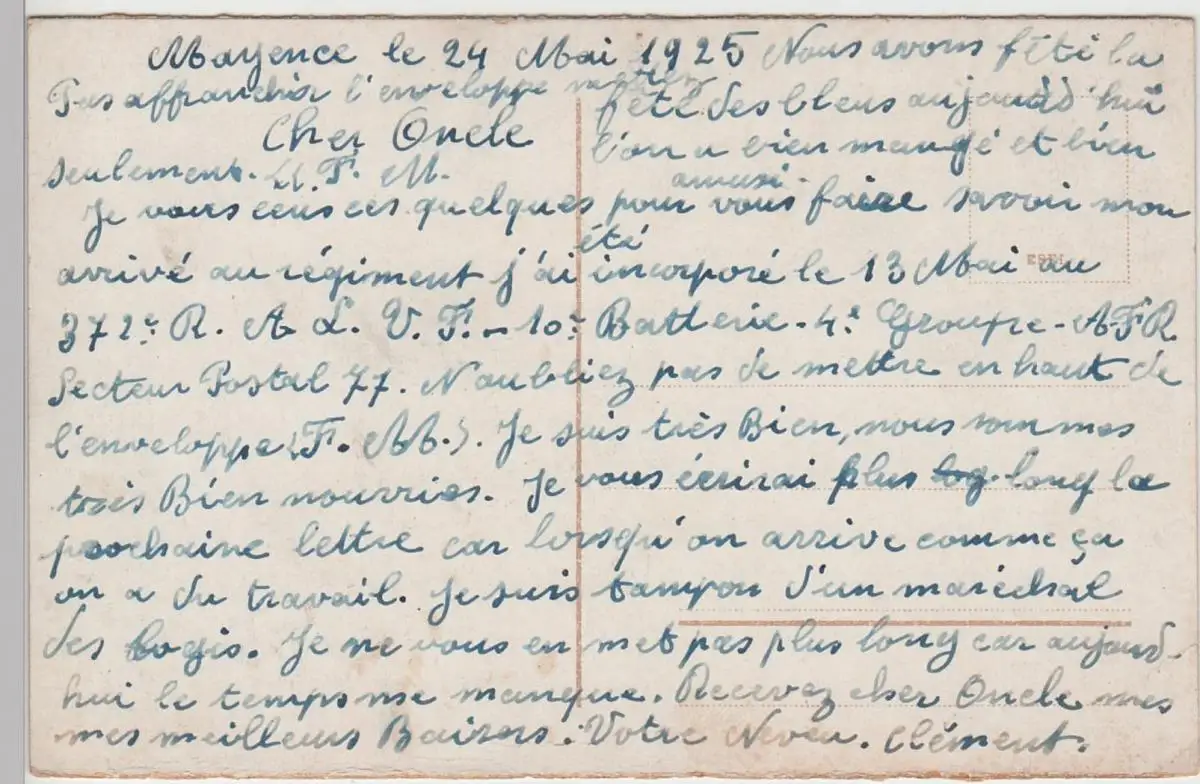 Mayence le 24 Mai 1925 Nous avons fété la
Pas affranchir l'enveloppe mettez fête des bleus aujourdd'hui
Cher Oncle l'on a bien mangé et bien
seulement. F. M. amusé.
Je vous ces quelques pour vous faire savoir mon
arrivé au régiment j'ai été incorporé le 13 Mai au
372e R. A L. V. F. - 10e Batterie - 4e Groupe - A.F.R.
Secteur Postal 77. N'oubliez pas de mettre en haut de
l'enveloppe (F. M.). Je suis très Bien, nous sommes
très Bien nourries. Je vous écrirai plus log. long la
prochaine lettre car lorsqu'on arrive comme ça
on a du travail. Je suis tampon d'un maréchal
des logis. Je ne vous en met pas plus long car aujourd-
hui le temps me manque. Recevez cher Oncle mes
mes meilleurs Baisers. Votre Neveu. Clément.